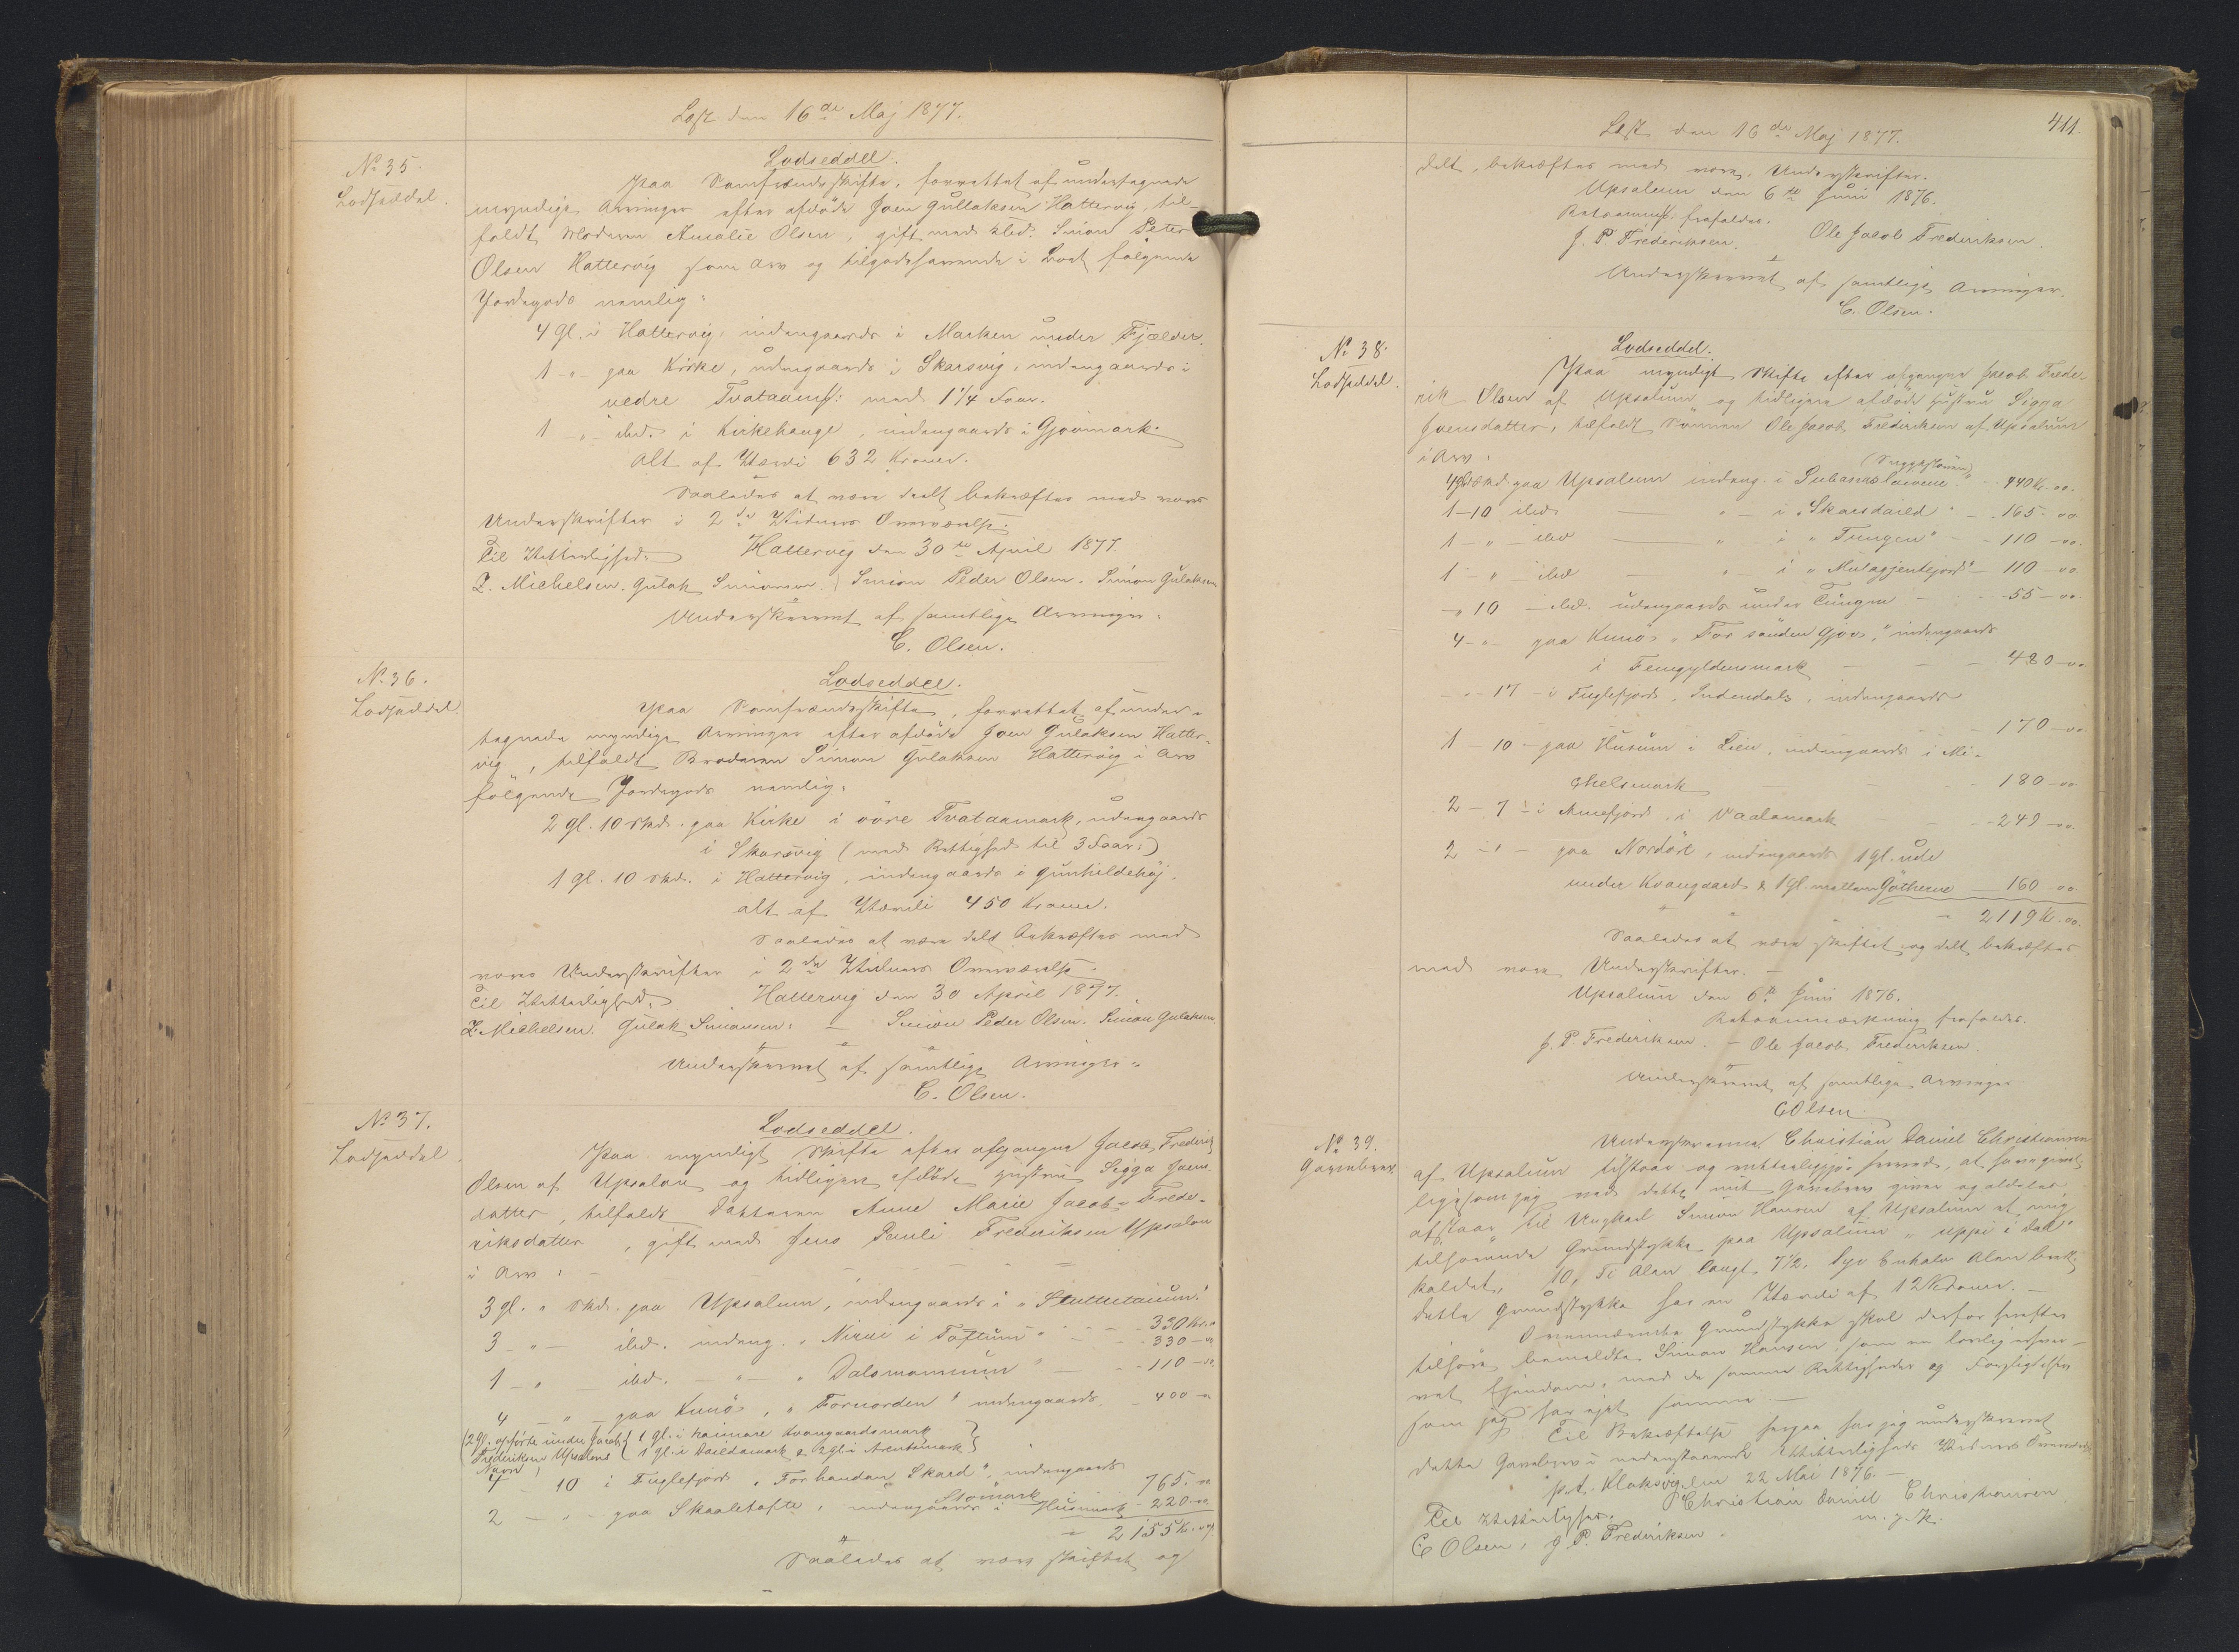 Læst den 16de Maj 1877.
No 35.
Lodseddel.
Lodseddel.
Paa Samfrændeskifte, forrettet af undertegnede
myndige Arvinger efter afdøde Joen Gullaksen Hattervig, til-
faldt Moderen Amalie Olsen, gift med Simon Peter
Olsen Hattervig som Arv og tilgodehavende i Boet følgende
Jordegods nemlig:
4 gl. i Hattervig, indengaards i Marken under Fjælder.
1 -"- paa Kirke, udengaards i Skarsvig, indengaards i
nedre Tvataamk: med 1 1/4 Faar.
1 -"- ibd. i Kirkehauge, indengaards i Gjovmark.
Alt af Værdi 632 Kroner.
Saaledes at være deelt bekræftes med vores
Underskrifter i 2de Vidners Overværelse.
Til Vitterlighed: Hattervig den 30te April 1877.
Z. Michelsen. Gulak Simonsen. Simon Peder Olsen. Simon Gulaksen
Underskrevet af samtlige Arvinger.
C. Olsen.
No 36.
Lodseddel.
Lodseddel.
Paa Samfrændeskifte, forrettet af under-
tegnede myndige Arvinger efter afdøde Joen Gulaksen Hatter-
vig, tilfaldt Broderen Simon Gulaksen Hattervig i Arv
følgende Jordegods nemlig:
2 gl. 10 Skd. paa Kirke i övre Tvataamark, udengaards
i Skarsvig (med Rettighed til 3 Faar:)
1 gl. 10 Skd. i Hattervig, indengaards i Gunhildehöj.
alt af Værdi 450 Kroner.
Saaledes at være delt bekræftes med
vores Underskrifter i 2de Vidners Overværelse.
Til Vitterlighed. Hattervig den 30 April 1877.
Z. Michelsen. Gulak Simonsen: - Simon Peder Olsen. Simon Gulaksen
Underskrevet af samtlige Arvinger.
C. Olsen.
No 37.
Lodseddel
Lodseddel.
Paa myndigt Skifte efter afgangne Jacob Frederik
Olsen af Upsalon og tidligere afdøde Hustru Sigga Joens
datter, tilfaldt Datteren Anne Marie Jacob-Frede-
riksdatter, gift med Jens Pauli Frederiksen Upsalon
i Arv:
3 gl. " Skd. paa Upsalum, indengaards i "Stuttutaium" 330 Kr. "
3 -"- ibd. indeng. "Nirui i Toftum" - 330 - "
1 -"- ibd. -"- "Dalsmannum" - 110 - "
4 -"- paa Kunö, "Fornorden" indengaards - 400 - "
(2 gl. opførte under Jacob { 1 gl. i haimare Kvangaardsmark }
Frederiksens Upsalons { 1 gl. i Daildamark & 2 gl. i Arentsmark }
Navn)
7 - 10 i Fuglefjord "For handan Skard", indengaards
Stomark 765. "
2 - " - paa Skaaletofte, indengaards i Husmark - 220. "
2155 Kr. "
Saaledes at være skiftet og
411.
Læst den 16de Maj 1877.
delt, bekræftes med vore Underskrifter.
Upsalum den 6te Juni 1876.
Retsanmk: frafaldes.
J. P. Frederiksen. Ole Jacob Frederiksen.
Underskrevet af samtlige Arvinger.
C. Olsen.
No 38.
Lodseddel.
Lodseddel.
Paa myndigt Skifte efter afgangne Jacob Frede-
rik Olsen af Upsalum og tidligere afdøde Hustru Sigga
Joensdatter, tilfaldt Sønnen Ole Jacob Frederiksen af Upsalum
i Arv:
paa Upsalum indeng. i 440 Kr. "
1-10 ibid - " - i "Skarsdaild" - 165 - "
1 - " - ibid - " - i "Tungen" - 110 - "
1 - " - ibid - " - i "Mulagjentsjord" - 110 - "
-"10 - ibd. udengaards under Tungen - 55 - "
4 -"- paa Kunö "For sönden Gjov," indengaards
i Femgyldensmark - 480 - "
-"-17 - i Fuglefjord, Indendals, indengaards
170 - "
1 - 10 - paa Husum i Lien, indengaards i Mi-
chelsmark - 180 - "
2 - 7 - i Arnefjord, i Vadlamark - 249 - "
2 - " - paa Nordöre, indengaards 1 gl. ude
under Kvangaard & 1 gl. mellem Götherne - 160 - "
2119 Kr. "
Saaledes at være skiftet og delt bekræftes
med vore Underskrifter. -
Upsalum den 6te Juni 1876.
Retsanmærkning frafaldes.
J. P. Frederiksen. - Ole Jacob Frederiksen.
Underskrevet af samtlige Arvinger
C Olsen.
No 39.
Gavebrev
Underskrevne Christian Daniel Christiansen
af Upsalum tilstaar og vitterliggjør herved, at have givet
ligesom jeg ved dette mit Gavebrev giver og aldeles
afstaar til Ungkarl Simon Hansen af Upsalum et mig
tilhørende Grundstykke paa Upsalum "uppi i Dal"
kaldet, 10, Ti Alen langt, 7 1/2, Syv en halv Alen bredt,
dette Grundstykke har en Værdi af 12 Kroner. -
Ovennævnte Grundstykke skal derfor herefter
tilhøre bemeldte Simon Hansen, som en lovlig erhver-
vet Ejendom, med de samme Rettigheder og Forpligtelser
som jeg har ejet samme. -
Til Bekræftelse herpaa har jeg underskrevet
dette Gavebrev i nedenstaaende Vitterligheds Vidners Overværelse
p.t. Klaksvig den 22 Mai 1876. -
Christian Daniel Christiansen
Til Vitterlighed. m. p. P.
C Olsen, J P. Frederiksen.